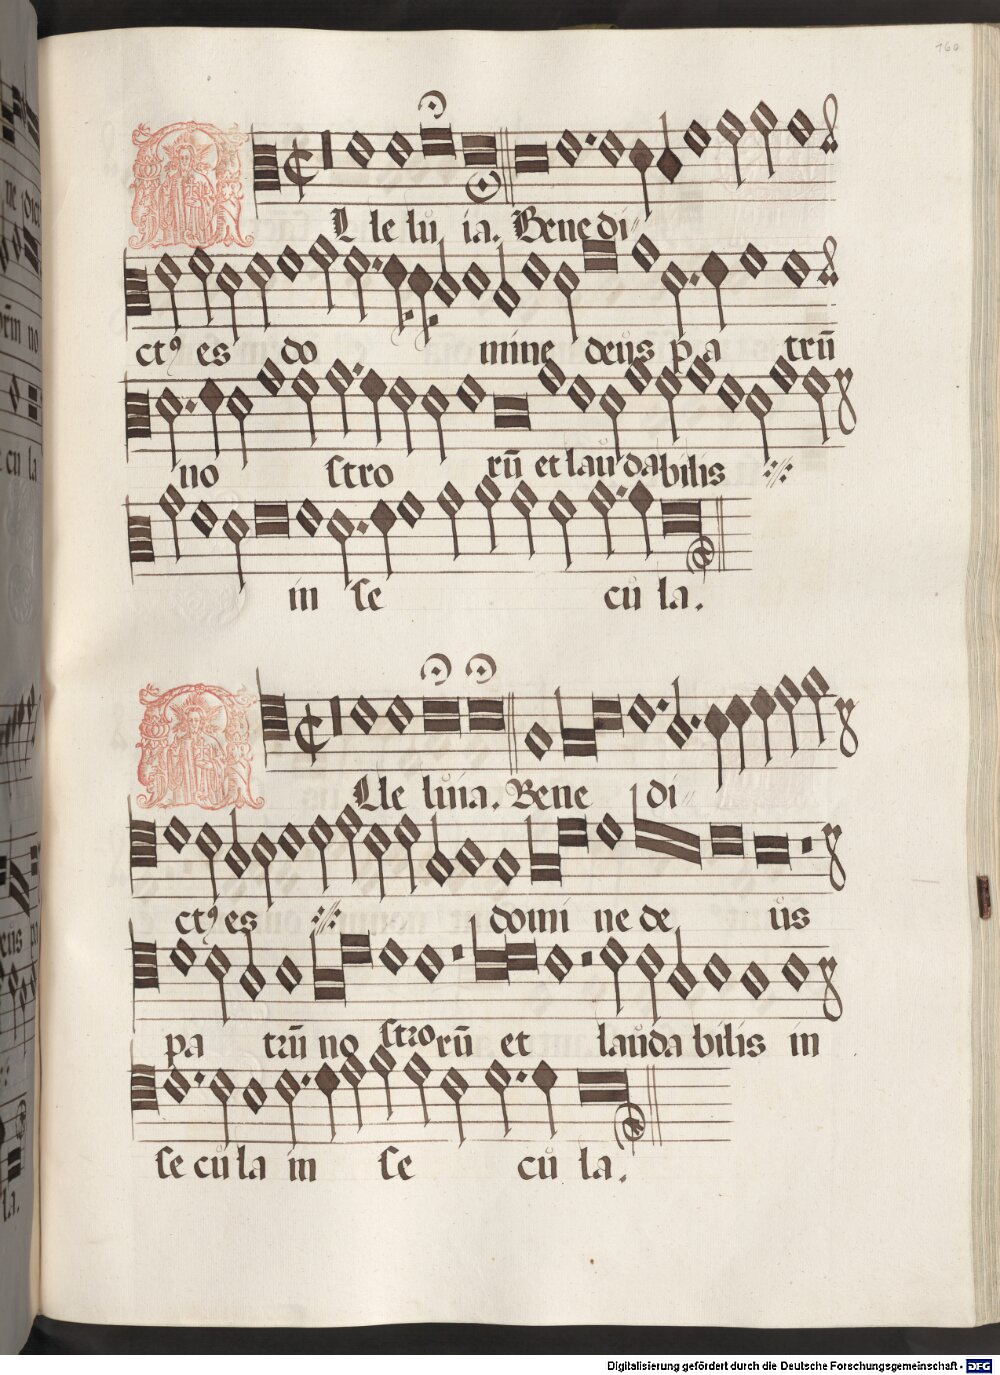 160
ALleluia. Benedi
ctꝰ es do mine deus pa trū
no stro rū et laudabilis ://:
in se cu la.
ALleluia. Bene di
ctꝰ es ://: domi ne de us
pa trū no stro rū et lauda bilis in
se cu la in se cu la.
Digitalisierung gefördert durch die Deutsche Forschungsgemeinschaft - DFG